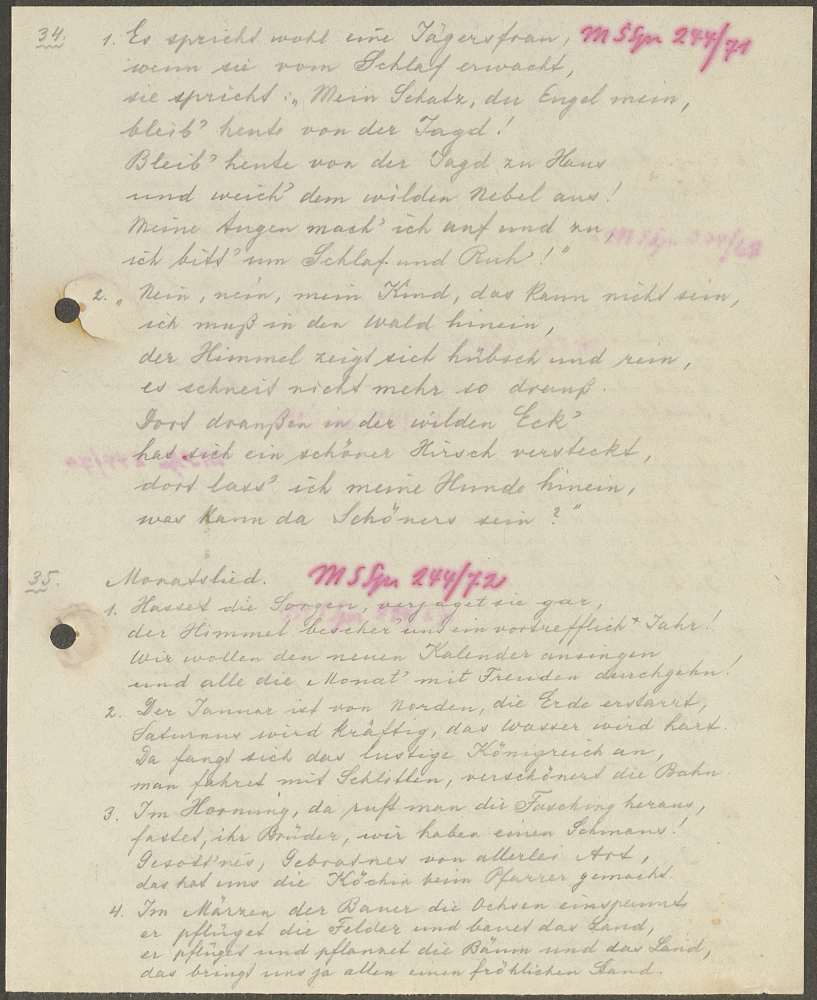 34. 1. Es spricht wohl eine Jägersfrau, M S Spr 244/71
wenn sie vom Schlaf erwacht,
sie spricht: „Mein Schatz, du Engel mein,
bleib' heute von der Jagd!
Bleib' heute von der Jagd zu Haus
und weich' dem wilden Nebel aus!
Meine Augen mach' ich auf und zu,
ich bitt' um Schlaf und Ruh'!"
2. „Nein, nein, mein Kind, das kann nicht sein,
ich muß in den Wald hinein,
der Himmel zeigt sich hübsch und rein,
es schneit nicht mehr so drauß.
Dort draußen in der wilden Eck'
hat sich ein schöner Hirsch versteckt,
dort lass' ich meine Hunde hinein,
was kann da Schöners sein?"
35. Monatslied. M S Spr 244/72
1. Hasset die Sorgen, verjaget sie gar,
der Himmel bescher' uns ein vortrefflich' Jahr!
Wir wollen den neuen Kalender ansingen
und alle die Monat' mit Freuden durchgehn!
2. Der Januar ist von Norden, die Erde erstarrt,
Saturnus wird kräftig, das Wasser wird hart.
Da fangt sich das lustige Königreich an,
man fahret mit Schlitten, verschönert die Bahn.
3. Im Hornung, da ruft man die Fasching heraus,
fastet, ihr Brüder, wir haben einen Schmaus!
Gesott'nes, Gebratnes von allerlei Art,
das hat uns die Köchin beim Pfarrer gemacht.
4. Im Märzen der Bauer die Ochsen einspannt
er pflüget die Felder und bauet das Land,
er pflüget und pflanzet die Bäum und das Land,
das bringt uns ja allen einen fröhlichen Stand.